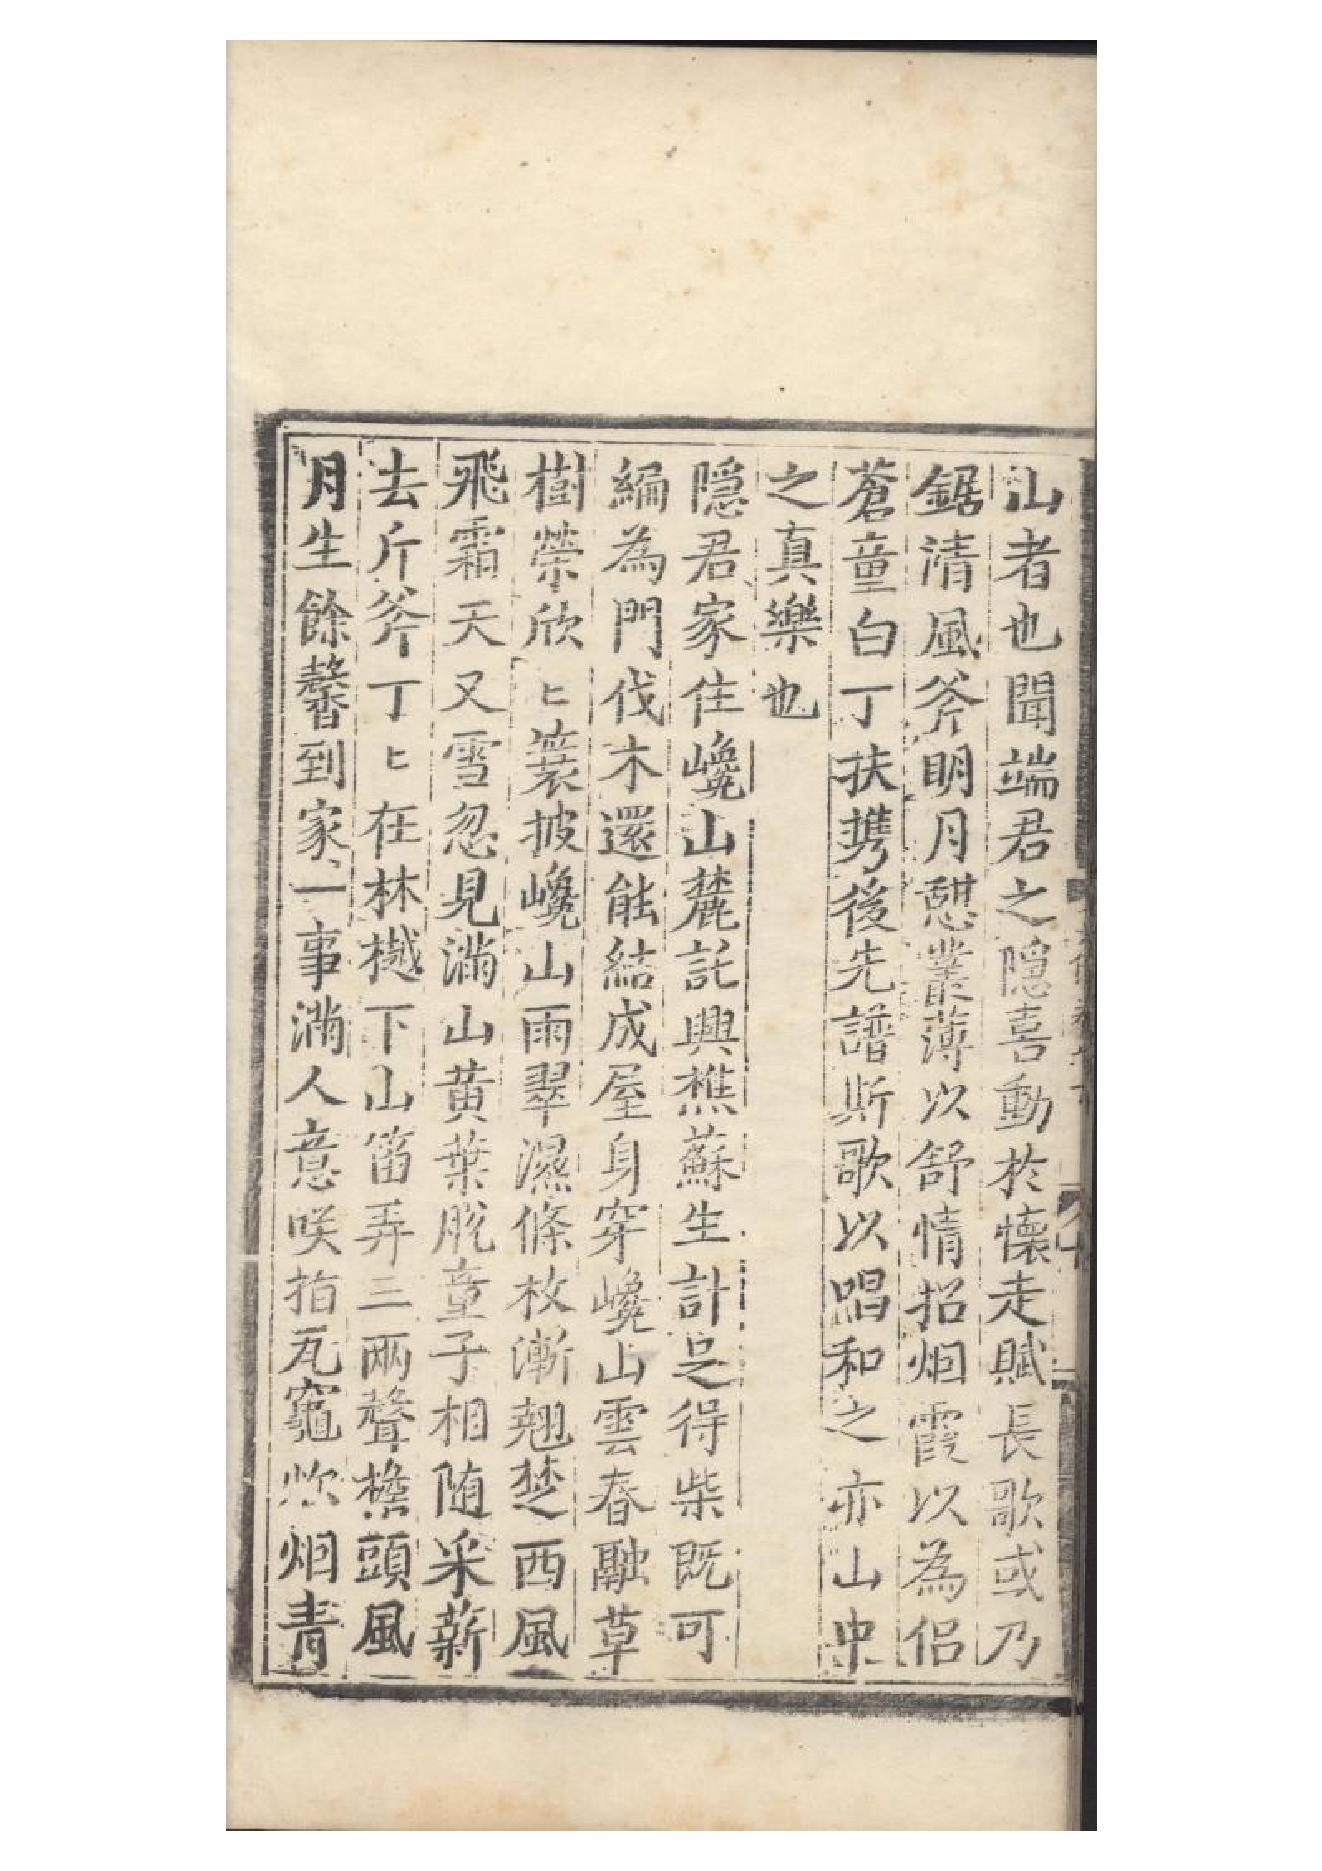 山者也聞端君之隠喜動於懐走賦長歌或乃
鋸清風斧明月憇叢薄以舒情招烟霞以為侣
蒼童白丁扶携後先譜斯歌以唱和之亦山中
之真樂也
隠君家住巉山麓託興樵蘇生計足得柴既可
編為門伐木還能結成屋身穿巉山雲春融草
樹榮欣〻蓑披巉山雨翠濕條枚漸翹楚西風
飛霜天又雪忽見滿山黃葉脫童子相随采薪
去斤斧丁〻在林樾下山笛弄三兩聲檐頭風
月生餘馨到家一事滿人意咲指瓦竈炊烟青